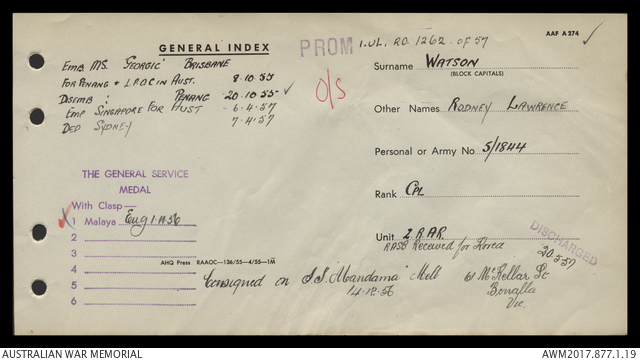 GENERAL INDEX
PROM
I.UL. RO. 1262 OF 57
AAF A 274
Emb MS. 'Georgic' Brisbane
For Penang & L.P.O.C in Aust. 8.10.55
Disemb: Penang 20.10.55
Emp Singapore For Aust 6.4.57
Ded Sydney 7.4.57
O/S
Surname WATSON
(BLOCK CAPITALS)
Other Names Rodney Lawrence
Personal or Army No. 5/1844
Rank Cpl
Unit 2 RAR
RASB Received for Korea
DISCHARGED
20.5.57
THE GENERAL SERVICE
MEDAL
With Clasp—
1 Malaya Eng 1.11.56
2
3
4
5
6
AHQ Press RAAOC—136/55—4/55—1M
Consigned on S.S. 'Mandama' Melb
14.12.56
61 McKellar St
Benalla
Vic.
AUSTRALIAN WAR MEMORIAL
AWM2017.877.1.19